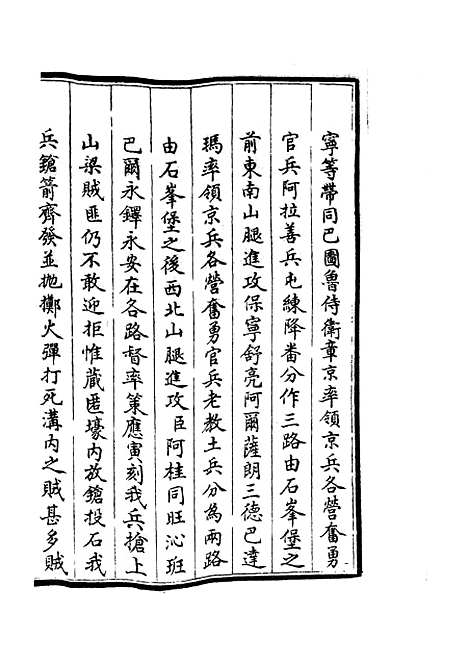 寧等帶同巴圖魯侍衛章京率領京兵各營奮勇
官兵阿拉善兵屯練降番分作三路由石峯堡之
前東南山腿進攻保寧舒亮阿爾薩朗三德巴達
瑪率領京兵各營奮勇官兵老教土兵分為兩路
由石峯堡之後西北山腿進攻臣阿桂同旺沁班
巴爾永鐸永安在各路督率策應寅刻我兵搶上
山梁賊匪仍不敢迎拒惟藏匿壕內放鎗投石我
兵鎗箭齊發並拋擲火彈打死溝內之賊甚多賊